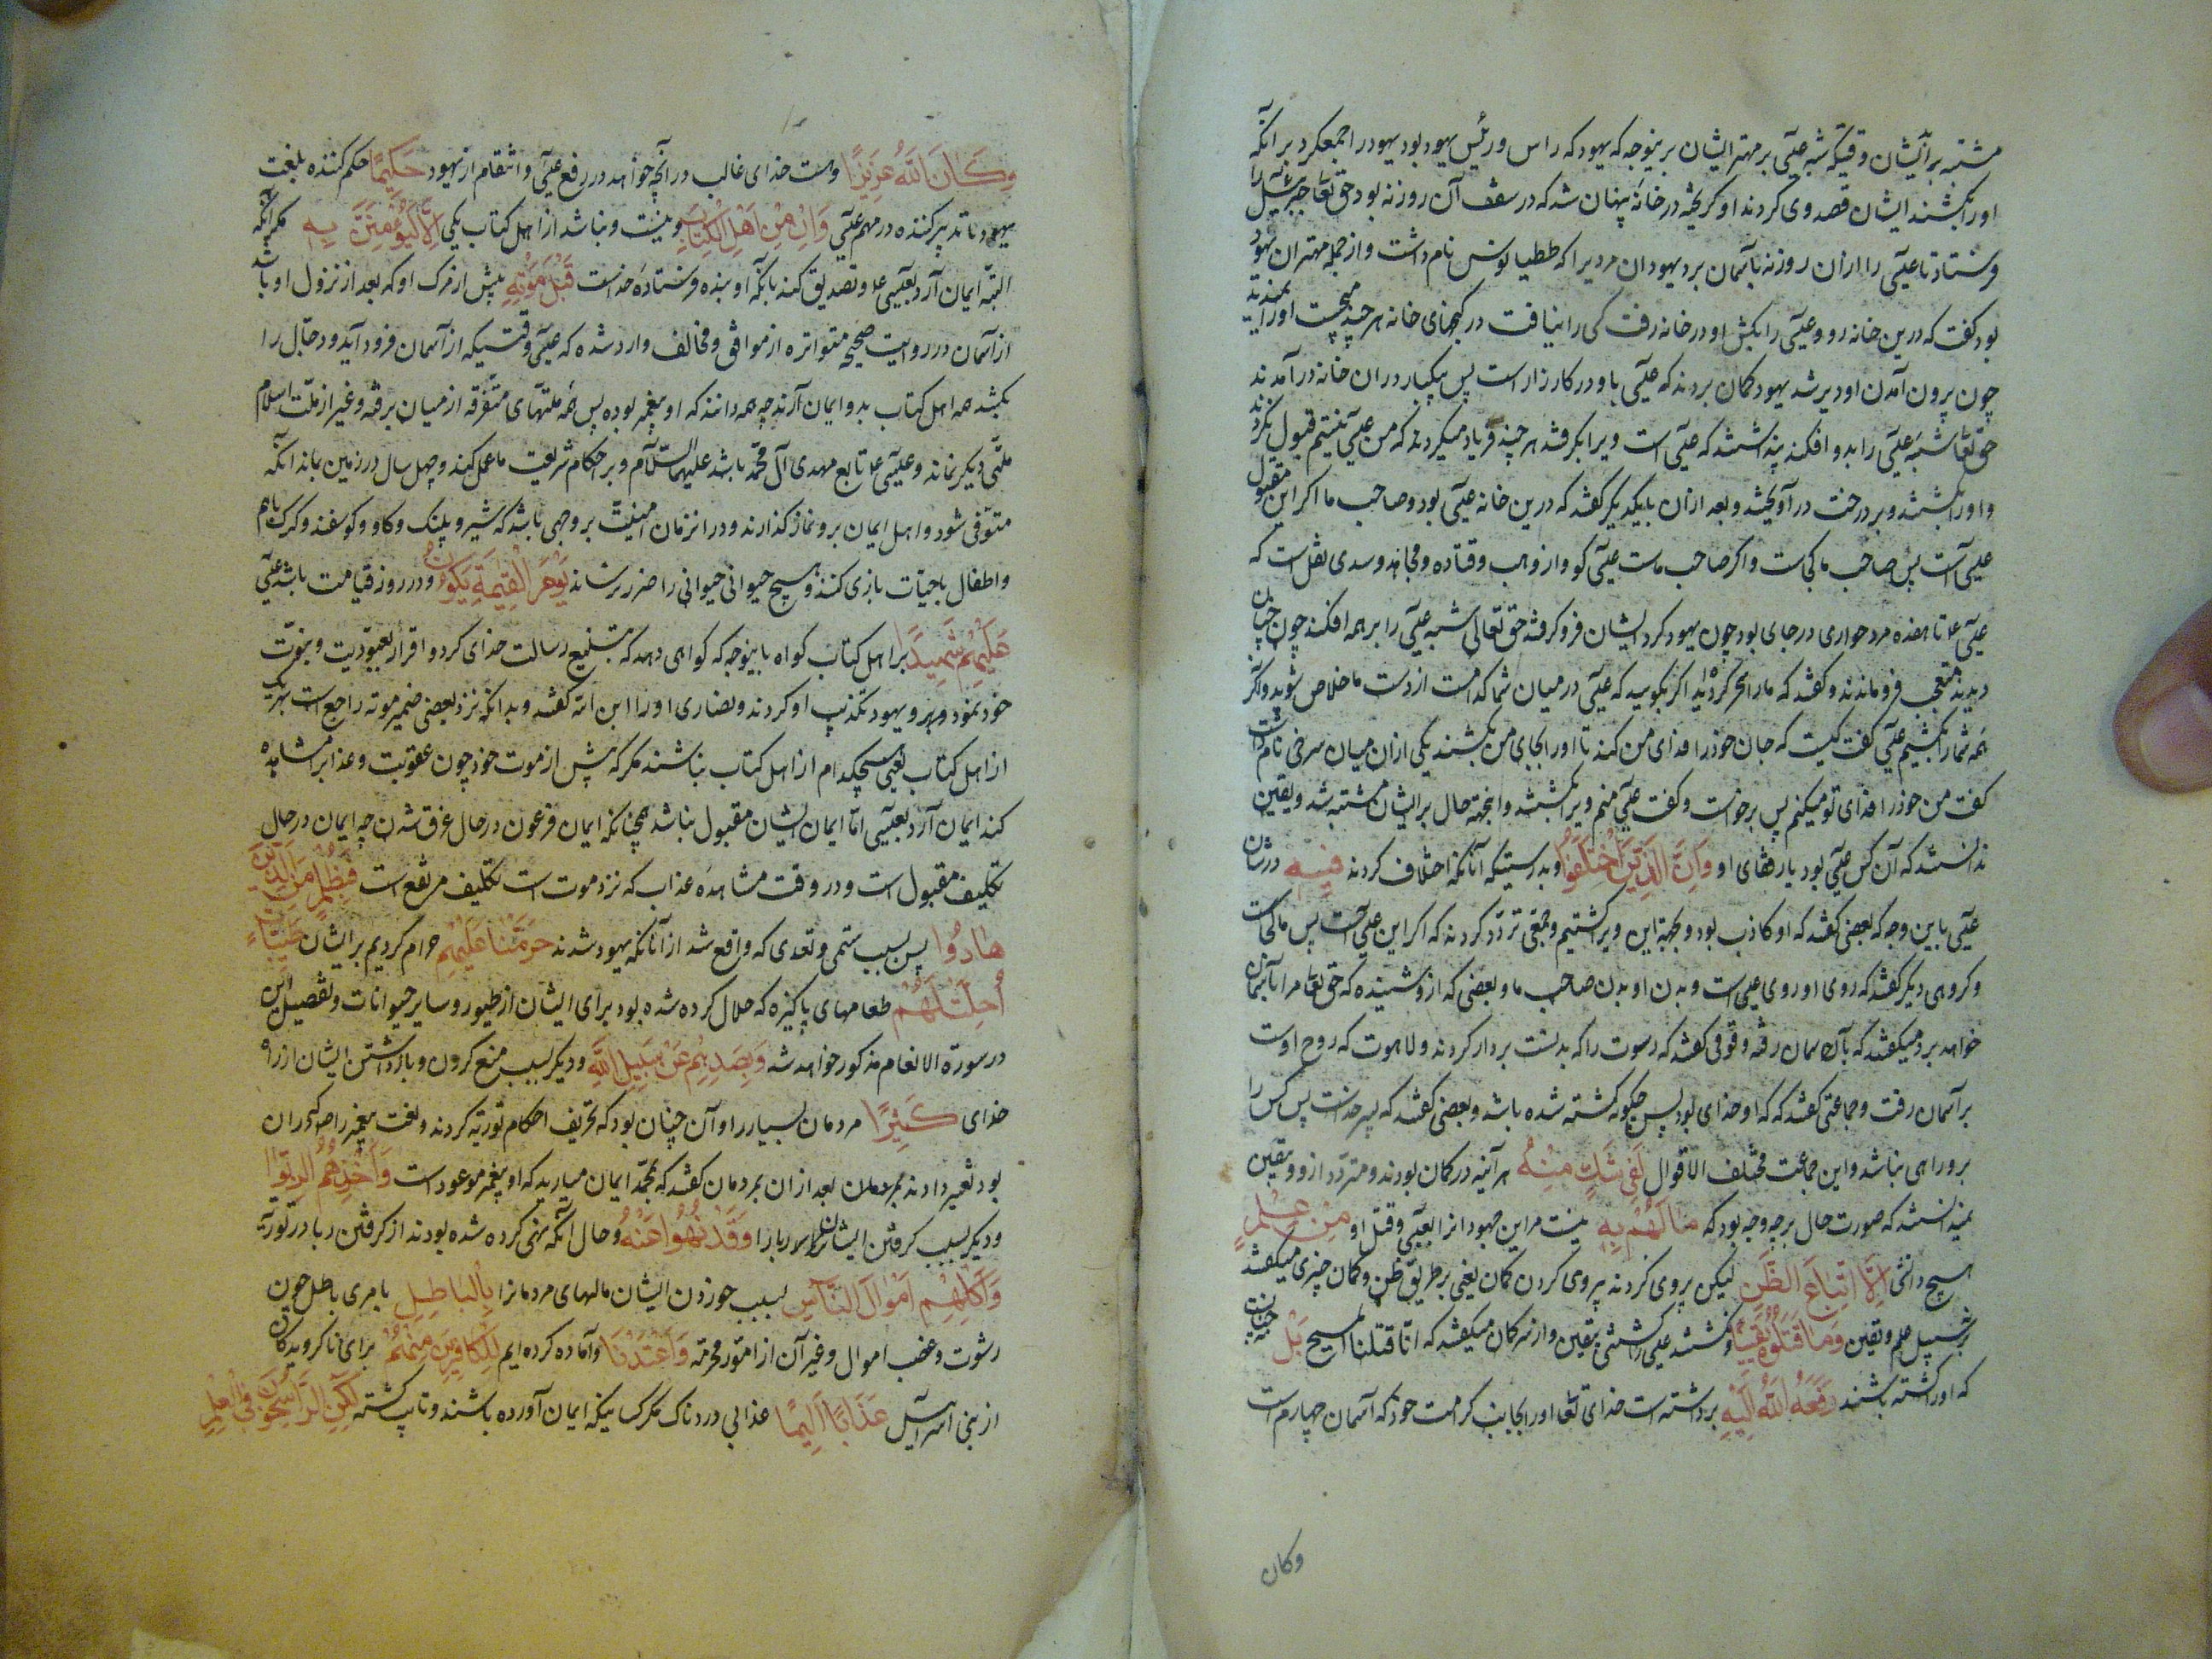 مشتبه بر ایشان وقتیکه شبه عیسی بر مهتر ایشان برینوجه که یهود که راس و رئیس یهود بود یهود را جمع کرد بر آنکه
او را بکشند ایشان قصد وی کردند او گریخته در خانهٔ پنهان شد که در سقف آن روزنه بود حق تعا جبرئیل را
فرستاد تا عیسی را ازان روزنه بآسمان برد یهودان مردیرا که ططیانوس نام داشت و از جمله مهتران یهود
بود گفت که درین خانه رو و عیسی را بکش او در خانه رفت کسی را نیافت در کنجهای خانه هر چند میجست او را ندید
چون بیرون آمدن او دیر شد یهود گمان بردند که عیسی با و در کارزار است پس بیکبار در آن خانه در آمدند
حق تعا شبه عیسی را بدو افکند پنداشتند که عیسی است ویرا بگرفتند هر چند فریاد میکرد که من عیسی نیستم قبول نکردند
و او را بکشتند و بر درخت در آویختند و بعد ازان بایکدیگر گفتند که درین خانه عیسی بود و صاحب ما اگر این مقتول
عیسی است پس صاحب ما کجاست و اگر صاحب ماست عیسی کو و از وهب و قتاده و مجاهد و سدی نقل است که
عیسی ع با هفده مرد حواری در جای بود چون یهود گرد ایشان فرو گرفتند حق تعالی شبه عیسی را بر همه افکند چون چنان
دیدند متعجب فرو ماندند و گفتند که ما را سحر کرده اید اگر بگویید که عیسی در میان شما کدامست از دست ما خلاص شوید و اگر نه
همه شما را بکشیم عیسی گفت کیست که جان خود را فدای من کند تا او را بجای من بکشند یکی ازان میان سرخس نام داشت
گفت من خود را فدای تو میکنم پس برخواست و گفت عیسی منم ویرا بکشتند و اینجهة حال بر ایشان مشتبه شد و یقین
ندانستند که آن کس عیسی بود یا رفقای او وَاِنَّ الَّذِینَ اخْتَلَفُوا و بدرستیکه آنانکه اختلاف کردند فِیهِ در شان
عیسی باین وجه که بعضی گفتند که او کاذب بود و بجهة این ویرا کشتیم و جمعی تردد کردند که اگر این عیسی است پس ما کجاست
و گروهی دیگر گفتند که روی او روی عیسی است و بدن او بدن صاحب ما و بعضی که ازو شنیدند که حق تعا مرا بآسمان
خواهد برد میگفتند که بآسمان رفته و قومی گفتند که ناسوت را که بدنست بردار کردند و لاهوت که روح اوست
بر آسمان رفت و جماعتی گفتند که که او خدای بود پس چگونه کشته شده باشد و بعضی گفتند که پسر خداست پس کس را
برو راهی نباشد و این جماعت مختلف الاقوال لَفِی شَكٍّ مِنْهُ هر آینه در گمان بودند و متردد ازو و یقین
نمیدانستند که صورت حال برچه وجه بود که مَا لَهُمْ بِهِ نیست مر این جهودانرا بعیسی و قتل او مِنْ عِلْمٍ
هیچ دانشی اِلَّا اتِّبَاعَ الظَّنِّ لیکن پیروی کردند پیروی کردن گمان یعنی بر طریق ظن و گمان چیزی میگفتند
بر سبیل علم و یقین وَمَا قَتَلُوهُ یَقِینًا و نکشتند عیسی را کشتنی بیقین و از سر گمان میگفتند که انا قتلنا المسیح بَلْ چنان نیست
که او را کشته باشند رَفَعَهُ اللَّهُ اِلَیْهِ برداشته است خدای تعا او را بجانب کرامت خود که آسمان چهارم است
وکان
وَكَانَ اللَّهُ عَزِیزًا و هست خدای غالب در آنچه خواهد در رفع عیسی و انتقام از یهود حَكِیمًا حکم کننده بلعنت
یهود تا تدبیر کننده در مهم عیسی وَاِنْ مِنْ اَهْلِ الْكِتَابِ و نیست و نباشد از اهل کتاب یکی اِلَّا لَیُؤْمِنَنَّ بِهِ مگر آنکه
البته ایمان آرد بعیسی ع و تصدیق کند بآنکه او بنده و فرستادهٔ خداست قَبْلَ مَوْتِهِ پیش از مرگ او که بعد از نزول او باشد
از آسمان در روایت صحیحه متواتره از موافق و مخالف وارد شده که عیسی وقتیکه از آسمان فرود آید و دجال را
بکشد همه اهل کتاب بدو ایمان آرند چه همه دانند که او پیغمبر بوده پس همه ملتهای متفرقه از میان برفته و غیر از ملت اسلام
ملتی دیگر نماند و عیسی ع تابع مهدی آل محمد باشد علیهما السلام و بر احکام شریعت ما عمل کند و چهل سال در زمین بماند آنگه
متوفی شود و اهل ایمان برو نماز گذارند و در انزمان امنیت بر وجهی باشد که شیر و پلنگ و گاو و گوسفند و گرگ باهم
و اطفال با حیات بازی کنند و هیچ حیوانی حیوانی را ضرر نرساند وَیَوْمَ الْقِیٰمَةِ یَكُونُ و در روز قیامت باشد عیسی
عَلَیْهِمْ شَهِیدًا بر اهل کتاب گواه باینوجه که گواهی دهد که تبلیغ رسالت خدای کرد و اقرار بعبودیت و نبوت
خود نمود و یهود تکذیب او کردند و نصاری او را ابن الله گفتند و بدانکه نزد بعضی ضمیر موته راجع است بهر یک
از اهل کتاب یعنی هیچکدام از اهل کتاب نباشند مگر که پیش از موت خود چون عقوبت و عذاب را مشاهده
کند ایمان آرد بعیسی اما ایمان ایشان مقبول نباشد همچنانکه ایمان فرعون در حال غرق شدن چه ایمان در حال
تکلیف مقبول است و در وقت مشاهدهٔ عذاب که نزد موت است تکلیف مرتفع است فَبِظُلْمٍ مِنَ الَّذِینَ
هَادُوا پس بسبب ستمی و تعدی که واقع شد از آنانکه یهود شدند حَرَّمْنَا عَلَیْهِمْ حرام گردیم بر ایشان طَیِّبَاتٍ
اُحِلَّتْ لَهُمْ طعامهای پاکیزه که حلال کرده شده بود برای ایشان از طیور و سایر حیوانات و تفصیل این
در سورة الانعام مذکور خواهد شد وَبِصَدِّهِمْ عَنْ سَبِیلِ اللَّهِ و دیگر بسبب منع کردن و بازداشتن ایشان از راه
خدای كَثِیرًا مردمان بسیار را و آن چنان بود که تحریف احکام توریة کردند و نعت پیغمبر را که در آن
بود تغییر دادند بعد ازان بمردمان گفتند که بمحمد ایمان میارید که او پیغمبر موعود است وَاَخْذِهِمُ الرِّبٰوا
و دیگر بسبب گرفتن ایشان ربا را وَقَدْ نُهُوا عَنْهُ و حال آنکه نهی کرده شده بودند از گرفتن ربا در توریة
وَاَكْلِهِمْ اَمْوَالَ النَّاسِ بسبب خوردن ایشان مالهای مردمانرا بِالْبَاطِلِ بامری باطل چون
رشوت و غصب اموال و غیر آن از امور محرمه وَاَعْتَدْنَا و آماده کرده ایم لِلْكَافِرِینَ مِنْهُمْ برای ناگرویدگان
از بنی اسرائیل عَذَابًا اَلِیمًا عذابی دردناک مگر کسانیکه ایمان آورده باشند و تایب گشته لَكِنِ الرَّاسِخُونَ فِی الْعِلْمِ